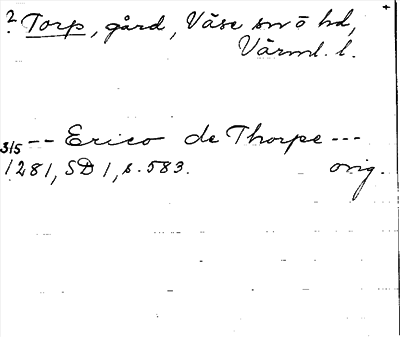 ? Torp, gård, Väse sn o hd,
Värml. l.
3/5 -- Erico de Thorpe ---
1281, SD 1, s. 583. orig.